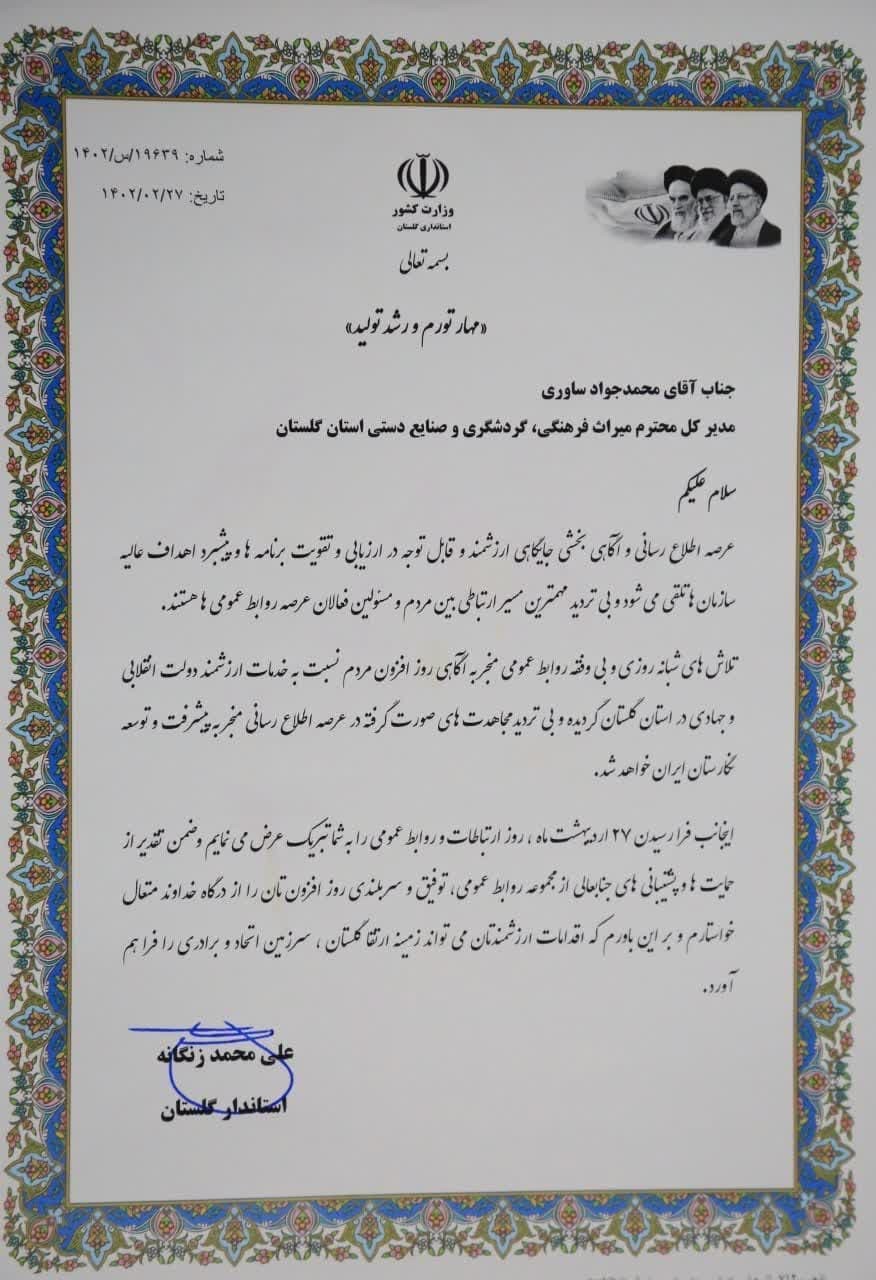 شماره: ۱۹۶۳۹/س/۱۴۰۲
تاریخ: ۱۴۰۲/۰۲/۲۷
وزارت کشور
استانداری گلستان
بسمه تعالی
«مهار تورم و رشد تولید»
جناب آقای محمدجواد ساوری
مدیر کل محترم میراث فرهنگی، گردشگری و صنایع دستی استان گلستان
سلام علیکم
عرصه اطلاع رسانی و آگاهی بخشی جایگاهی ارزشمند و قابل توجه در ارزیابی و تقویت برنامه ها و پیشبرد اهداف عالیه
سازمان ها تلقی می شود و بی تردید مهمترین مسیر ارتباطی بین مردم و مسئولین فعالان عرصه روابط عمومی ها هستند.
تلاش های شبانه روزی و بی وقفه روابط عمومی منجر به آگاهی روز افزون مردم نسبت به خدمات ارزشمند دولت انقلابی
و جهادی در استان گلستان گردیده و بی تردید مجاهدت های صورت گرفته در عرصه اطلاع رسانی منجر به پیشرفت و توسعه
نگارستان ایران خواهد شد.
اینجانب فرا رسیدن ۲۷ اردیبهشت ماه ، روز ارتباطات و روابط عمومی را به شما تبریک عرض می نمایم و ضمن تقدیر از
حمایت ها و پشتیبانی های جنابعالی از مجموعه روابط عمومی، توفیق و سربلندی روز افزون تان را از درگاه خداوند متعال
خواستارم و بر این باورم که اقدامات ارزشمندتان می تواند زمینه ارتقا گلستان ، سرزمین اتحاد و برادری را فراهم
آورد.
علی محمد زنگانه
استاندار گلستان